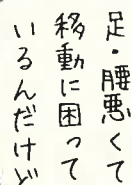 足・腰悪くて
移動に困って
いるんだけど